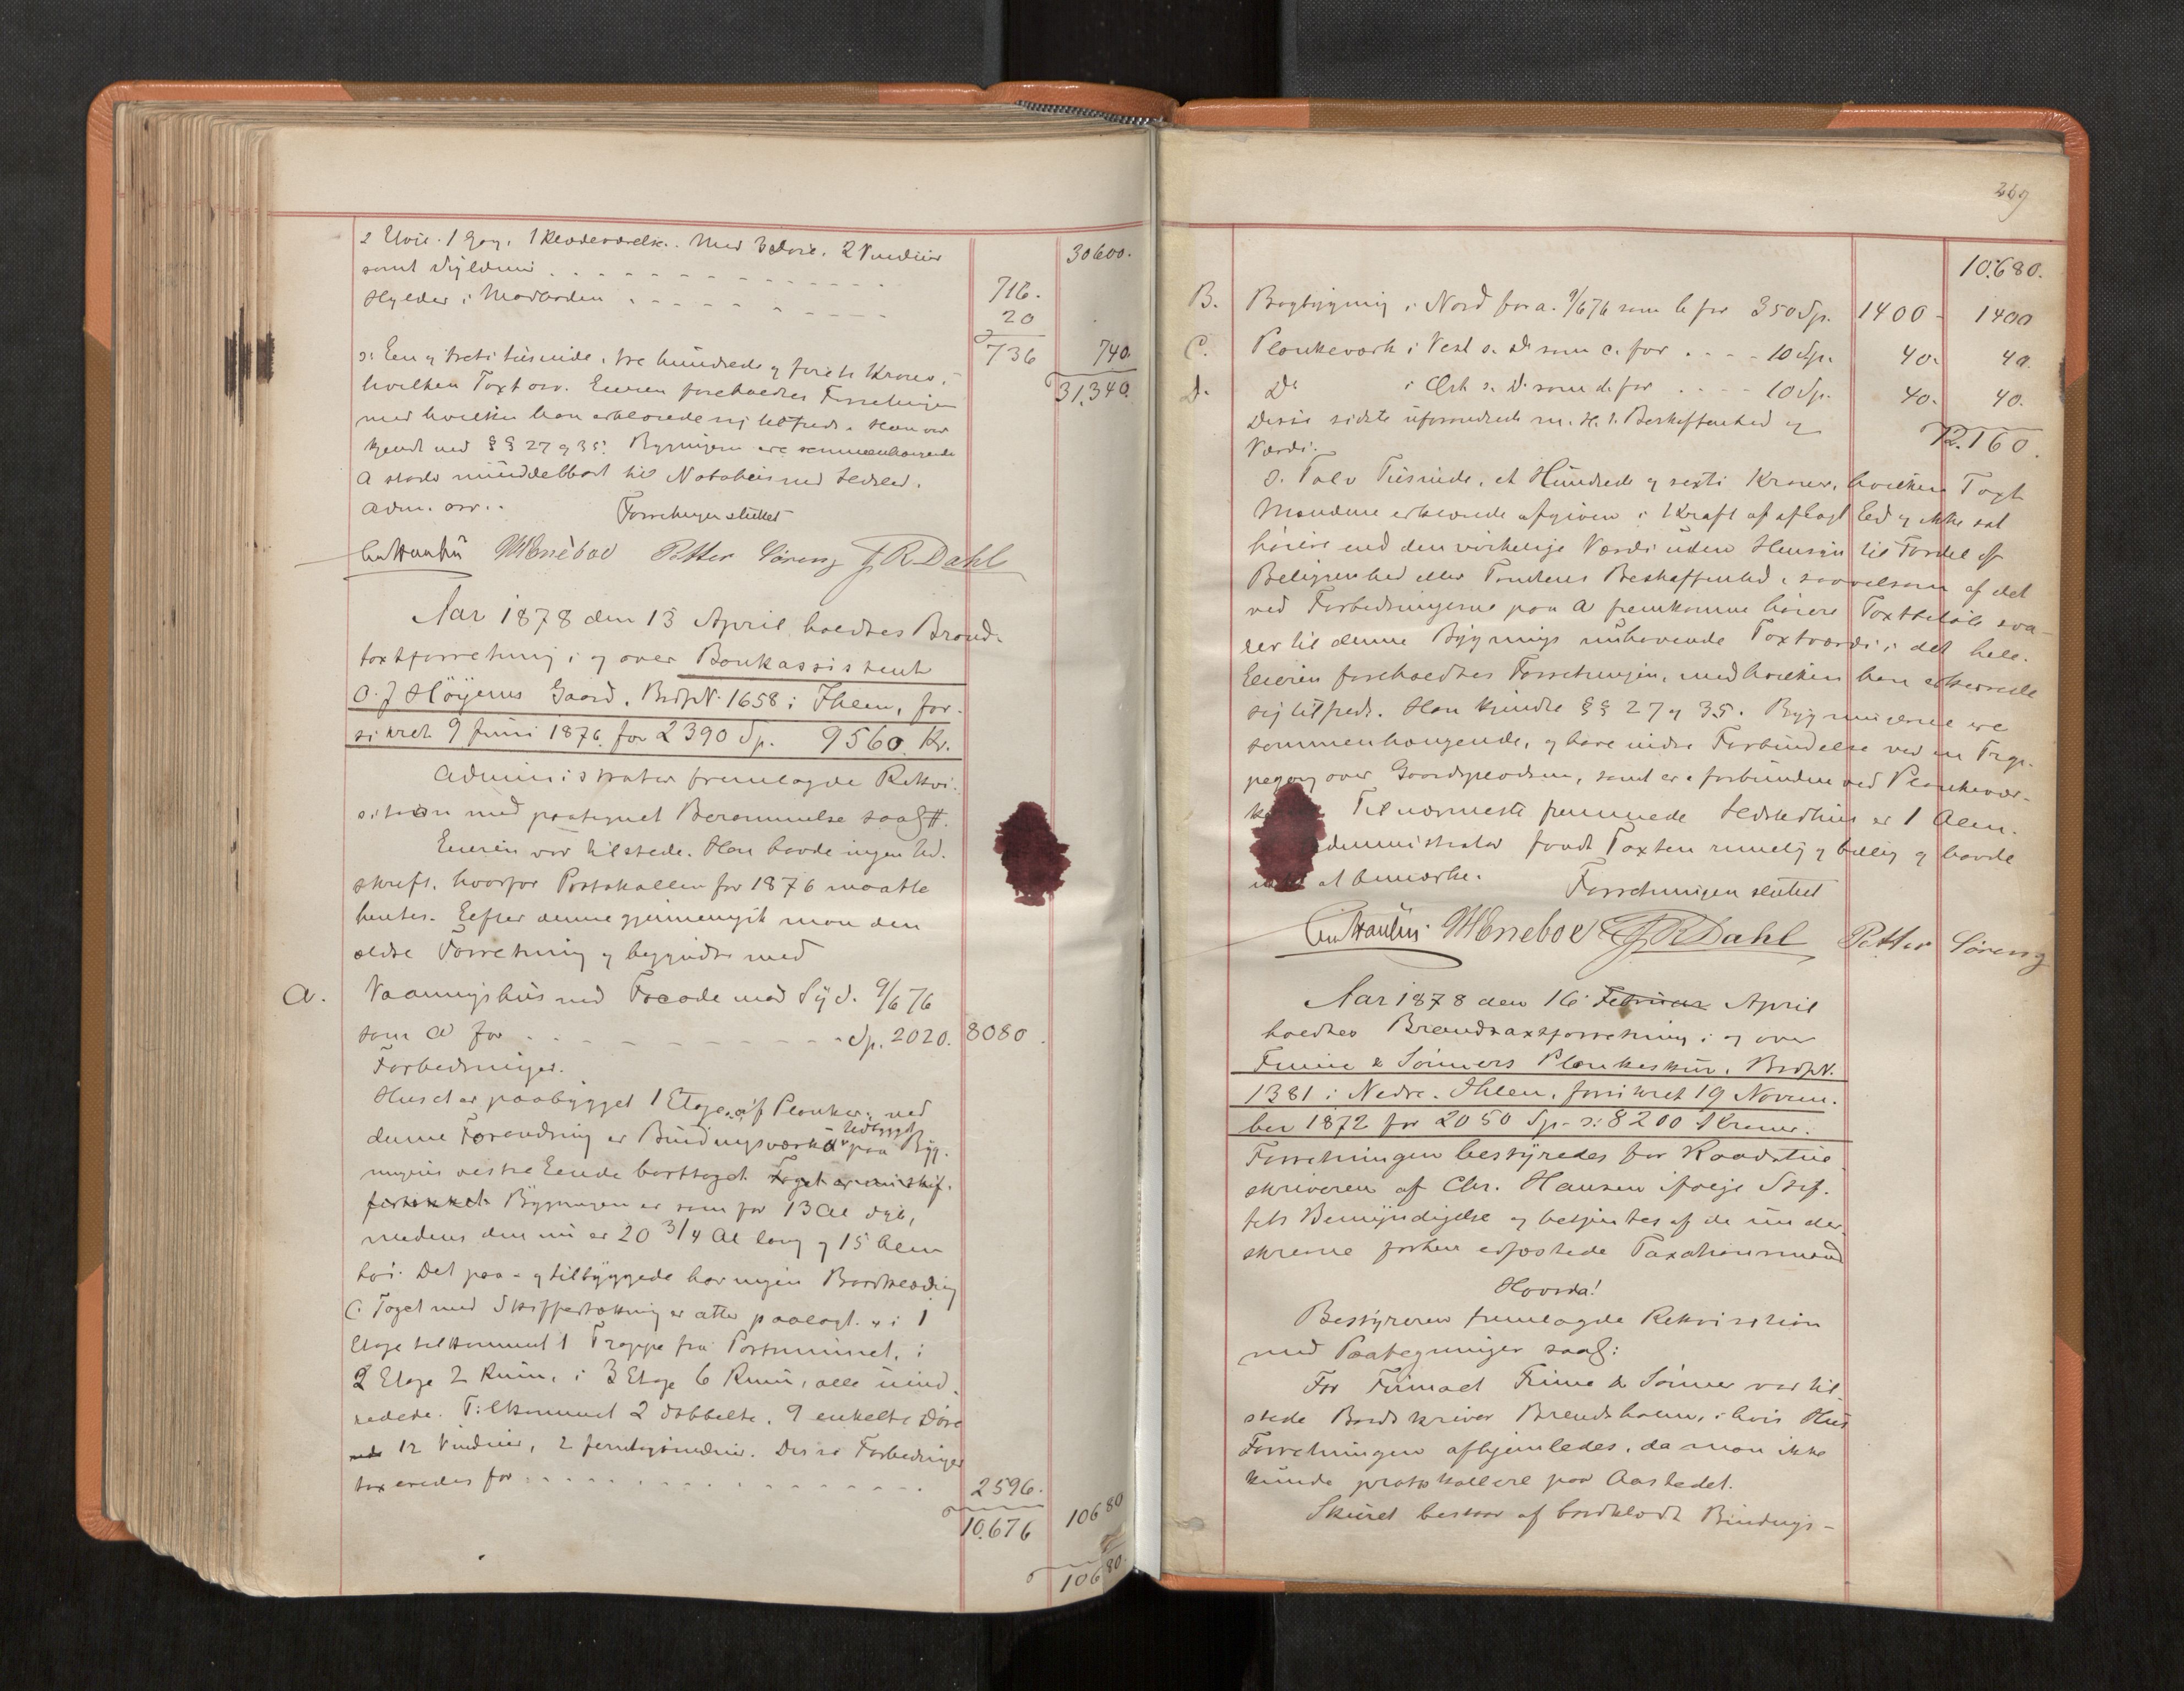 30600.
samt
Hylder i Madboden
716.
20
736 740.
31,340.
o: Een og treti tusinde, tre hundrede og foreti Kroner,
hvilken Taxt osv. Eieren foreholdtes Forretningen
med hvilken han erklærede sig tilfreds. Han var
kjendt med §§ 27 og 35. Bygningerne ere sammenhængende
A støder umiddelbart til Nabohuus ved Ildsted.
Adm. osv.
Forretningen sluttet
Chr Hansen MEneboe Petter Søreng J R Dahl
Aar 1878 den 13 April holdtes Brand-
taxtforretning i og over Bankassistent
O. J Höyems Gaard, BrdpN. 1658 i Ihlen, for-
sikret 9 Juni 1876 for 2390 Sp. 9560 Kr.
Administrator fremlagde Rekvi-
sition med paategnet Berammelse saal#.
Eieren var tilstede. Han havde ingen Ud-
skrift, hvorfor Protokollen for 1876 maatte
hentes. Eefter denne gjennemgik man den
ældre Forretning og begyndte med
A.
Vaaningshus med Facade mod Syd. 9/6 76
som A for Sp. 2020. 8080.
Forbedringer.
Huset er paabygget 1 Etage af Planker; ved
denne Forandring er Bindingsværks Udbygget paa Byg-
ningens vestre Eende borttaget. Taget er
Bygningen er som før 13 Al dyb,
medens den nu er 20 3/4 Al lang og 15 Alen
høi. Det paa- og tilbyggede har ingen Bordklædning
Taget med Skiffertækning er atter paalagt. i 1
Etage tilkommet 1 Trappe fra Portrummet, i
2 Etage 2 Rum, i 3 Etage 6 Rum, alle uind-
redede. Tilkommet 2 dobbelte, 9 enkelte Døre
12 Vinduer, 2. Disse Forbedringer
taxeredes for 2596.
10.676 10680
10680.
269
10.680.
B. Bagbygning i Nord for a. 9/6 76 som b for 350 Sp. 1400 - 1400
C. Plankeværk i Vest s. D. som c. for 10 Sp. 40. 40.
D. Do i Øst s. D. som d. for 10 Sp. 40. 40.
Disse sidste uforandrede m. H. t. Beskaffenhed og
Værdi.
12.160.
o: Tolv Tusinde, et Hundrede og sexti Kroner, hvilken Taxt
Mændene erklærede afgiven i Kraft af aflagt Eed og ikke sat
høiere end den virkelige Værdi uden Hensyn til Fordel af
Beligenhed eller Tomtens Beskaffenhed, saavelsom at det
ved Forbedringerne paa A fremkomne høiere Taxtbeløb sva-
rer til denne Bygnings nuhavende Taxtværdi i det hele.
Eieren foreholdtes Forretningen, med hvilken han erklærede
sig tilfreds. Han kjendte §§ 27 og 35. Bygningerne ere
sammenhængende, og have indre Forbindelse ved en Trap-
pegang over Gaardspladsen, samt ere forbundne ved Plankevær-
Til nærmeste fremmede Ildstedhus er 1 Alen.
Administrator fandt Taxten rimelig og billig og havde
intet at bemærke.
Forretningen sluttet
Chr Hansen MEneboe J R Dahl Petter Søreng
Aar 1878 den 16 Februar April
holdtes Brandtaxtforretning i og over
Finne & Sønners Plankeskur, BrdpN.
1381 i Nedre Ihlen, forsikret 19 Novem-
ber 1872 for 2050 Sp - o: 8200 Kroner.
Forretningen bestyredes for Raadstue-
skriveren af Chr. Hansen ifølge Stif-
tets Bemyndigelse og betjentes af de under-
skrevne forhen edfæstede Taxationsmænd
Hvorda!
Bestyreren fremlagde Rekvisition
med Paategninger saal:
For Firmaet Finne & Sønner var til-
stede Bordskriver Brendsholm, i hvis Hus
Forretningen afhjemledes, da man ikke
kunde protokollere paa Aastedet.
Skuret bestaar af bordklædt Bindings-